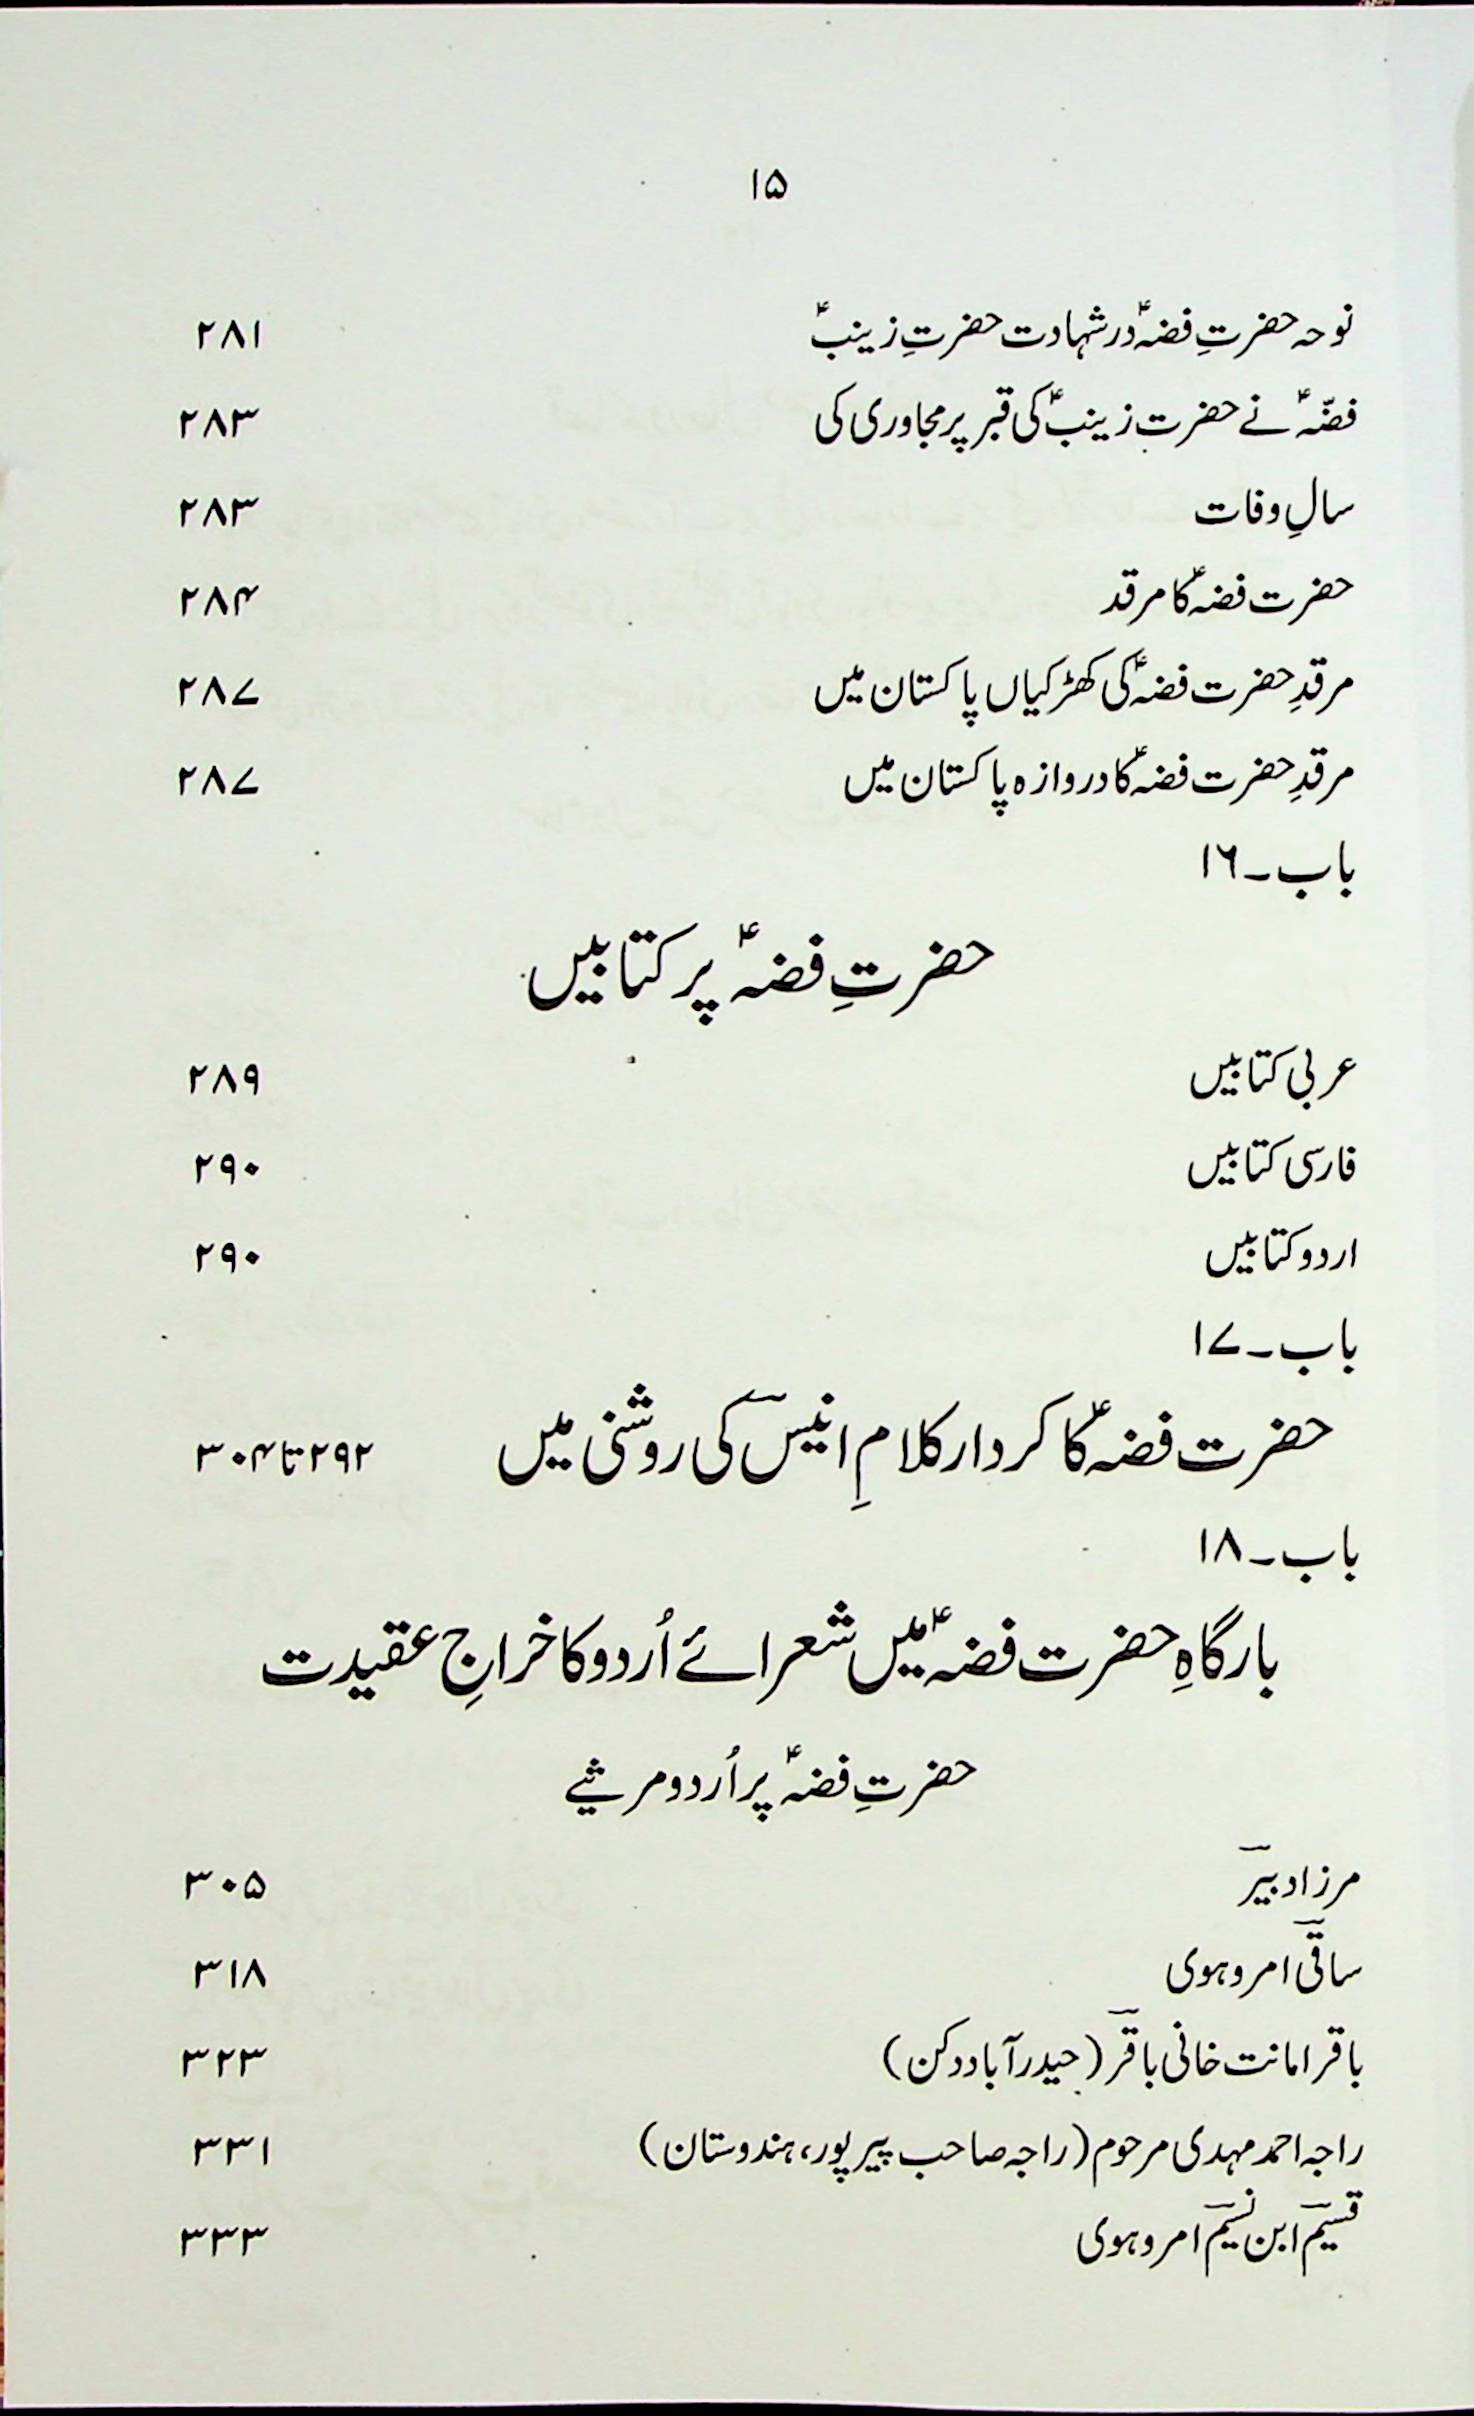 ۱۵
نوحہ حضرتِ فضہؑ در شہادت حضرتِ زینبؑ ۲۸۱
فضّہؑ نے حضرت زینبؑ کی قبر پر مجاوری کی ۲۸۳
سالِ وفات ۲۸۳
حضرت فضہؑ کا مرقد ۲۸۴
مرقدِ حضرت فضہؑ کی کھڑکیاں پاکستان میں ۲۸۷
مرقدِ حضرت فضہؑ کا دروازہ پاکستان میں ۲۸۷
باب۔۱۶
حضرتِ فضہؑ پر کتابیں
عربی کتابیں ۲۸۹
فارسی کتابیں ۲۹۰
اردو کتابیں ۲۹۰
باب۔۱۷
حضرت فضہؑ کا کردار کلامِ انیسؔ کی روشنی میں ۲۹۲ تا ۳۰۴
باب۔۱۸
بارگاہِ حضرت فضہؑ میں شعرائے اُردو کا خراجِ عقیدت
حضرتِ فضہؑ پر اُردو مرثیے
مرزا دبیرؔ ۳۰۵
ساقیؔ امروہوی ۳۱۸
باقر امانت خانی باقرؔ (حیدرآباد دکن) ۳۲۳
راجہ احمد مہدی مرحوم (راجہ صاحب پیرپور، ہندوستان) ۳۳۱
قسیمؔ ابن نسیمؔ امروہوی ۳۳۳